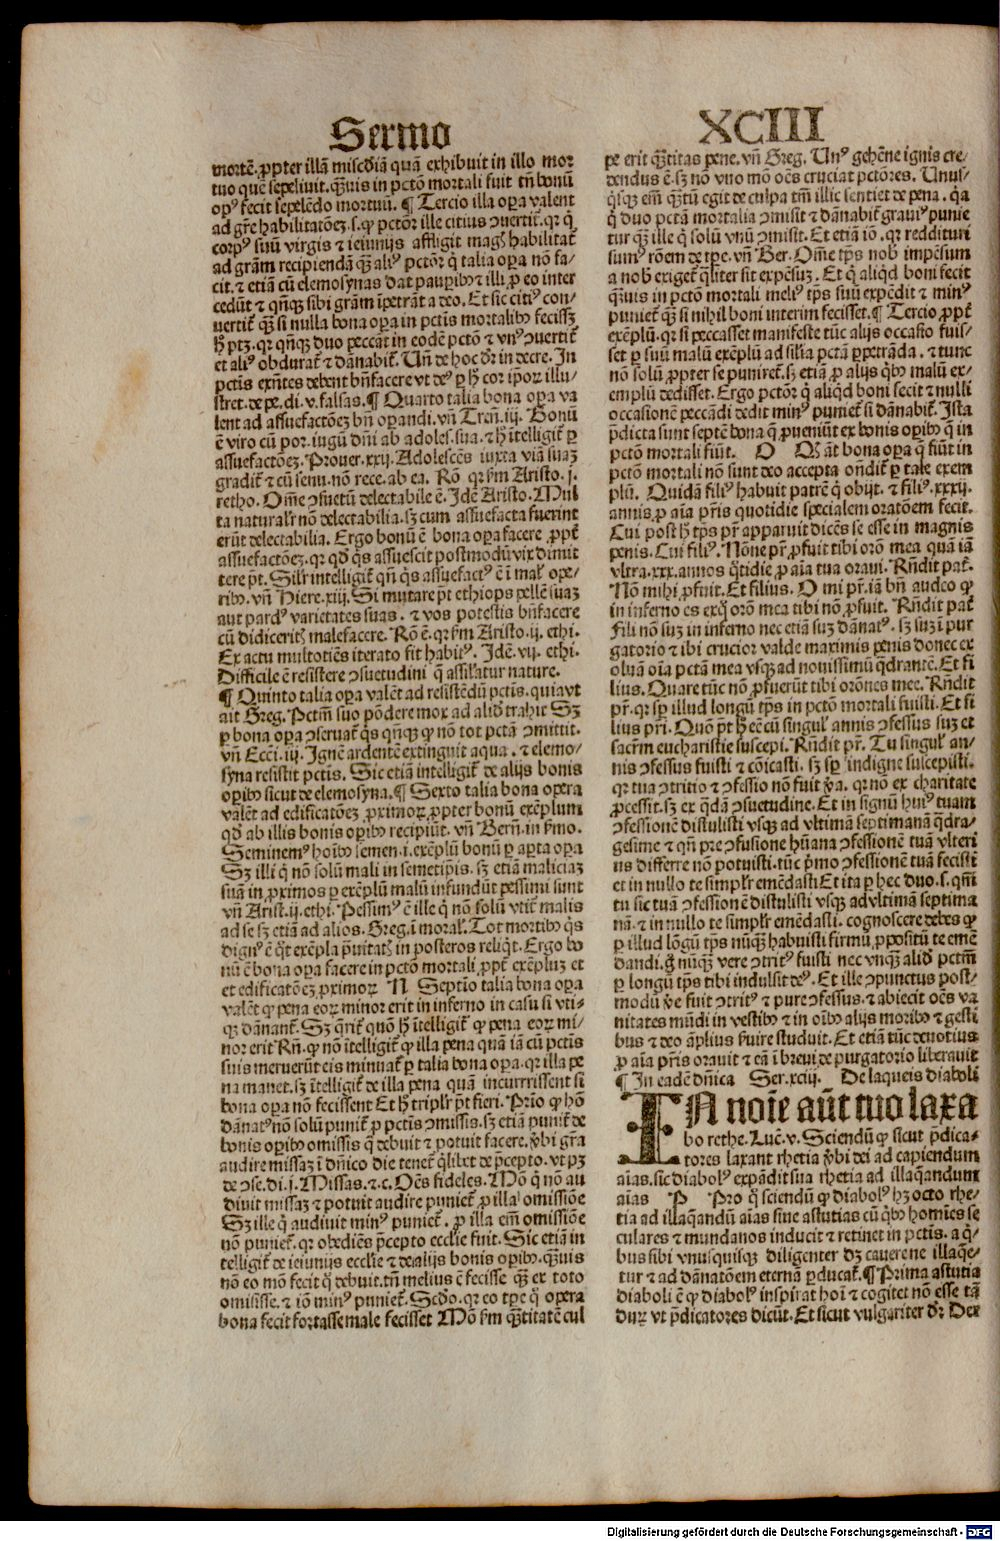 Sermo
XCIII
mortē. ꝓpter illā miscdiā quā exhibuit in illo mor
tuo quē sepeliuit. q̄uis in pctō mortali fuit tñ bonū
opꝰ fecit sepelēdo mortuū. ¶ Tercio illa oꝑa valent
ad gr̄e habilitatōeꝫ. s. ꝙ pctōr ille citius ↄuertit̄. qꝛ q̇
corpꝰ suū virgis ⁊ ieiunijs affligit magꝭ habilitat̄
ad grām recipiendā qꝫ aliꝰ pctōr q̇ talia oꝑa nō fa⸗
cit. ⁊ etiā cū elemosynas dat pauꝑibꝰ illi ꝓ eo inter
cedūt ⁊ qn̄qꝫ sibi grām īpetrāt a deo. Et sic citiꝰ con⸗
uertit̄ qꝫ si nulla bona oꝑa in pctīs mortalibꝰ fecissꝫ
ħ ptꝫ. qꝛ qn̄qꝫ duo peccāt in eodē pctō ⁊ vnꝰ ↄuertit̄
et aliꝰ obdurat̄ ⁊ dānabit̄. Vn̄ de hoc dr̄ in decre. In
pctīs exn̄tes debent bn̄facere vt deꝰ ꝑ ħ cor ipoꝝ illu⸗
stret. de pe. di. v. falsas. ¶ Quarto talia bona oꝑa va
lent ad assuefactōeꝫ bn̄ oꝑandi. vn̄ Tren̄. iij. Bonū
ē viro cū por. iugū dn̄i ab adoles. sua. ⁊ ħ ītelligit̄ ꝑ
assuefactōeꝫ. Prouer. xxij. Adolescēs iuxta viā suaꝫ
gradit̄ ⁊ cū senu. nō rece. ab ea. Rō qꝛ ẜm Aristo. j.
retho. Om̄e ↄsuetū delectabile ē. Idē Aristo. Mul
ta naturalr̄ nō delectabilia. sꝫ cum assuefacta fuerint
erūt delectabilia. Ergo bonū ē bona oꝑa facere ꝓpt̄
assuefactōeꝫ. qꝛ qd̄ q̇s assuescit postmodū vix dimit
tere pt̄. Silr̄ intelligit̄ qn̄ q̇s assuefactꝰ ē ī mal̄ ope⸗
ribꝰ. vn̄ Hiere. xiij. Si mutare pt̄ ethiops pellē suaꝫ
aut pardꝰ varietates suas. ⁊ vos potestis bn̄facere
cū didiceritꝭ malefacere. Rō ē. qꝛ ẜm Aristo. ij. ethi.
Ex actu multotiēs iterato fit habitꝰ. Idē. vij. ethi.
Difficile ē resistere ↄsuetudini q̄ assil̄atur nature.
¶ Quinto talia oꝑa valēt ad resistēdū pctīs. quia vt
ait Greg. Pctm̄ suo pōdere mox ad alid trahit Sꝫ
ꝑ bona oꝑa ↄseruat̄ q̇s qn̄qꝫ ꝙ nō tot pctā ↄmittit.
vn̄ Ecci. iij. Ignē ardentē extinguit aqua. ⁊ elemo⸗
syna resistit pctīs. Sic etiā intelligit̄ de alijs bonis
oꝑibꝰ sicut de elemosyna. ¶ Sexto talia bona opera
valēt ad edificatōeꝫ ꝓximoꝝ ꝓpter bonū exēplum
qd̄ ab illis bonis oꝑibꝰ recipiūt. vn̄ Bern̄. in ẜmo.
Seminemꝰ hoībꝰ semen. i. exēplū bonū ꝑ aꝑta oꝑa
Sꝫ illi q̇ nō solū mali in semetipīs. sꝫ etiā maliciaꝫ
suā in ꝓximos ꝑ exēplū malū infundūt pessimi sunt
vn̄ Arist. ij. ethi. Pessimꝰ ē ille q̇ nō solū vtit̄ malis
ad se sꝫ etiā ad alios. Greg. ī moral̄. Tot mortibꝰ q̇s
dignꝰ ē q̄t exēpla prauitatꝭ in posteros reliq̇t. Ergo bo
nū ē bona oꝑa facere in pctō mortali ꝓpt̄ exēpluꝫ et
et edificatōeꝫ ꝓximoꝝ N Septīo talia bona oꝑa
valēt ꝙ pena eoꝝ minor erit in inferno in casu si vti⸗
qꝫ dānant̄. Sꝫ q̄rit̄ quō ħ ītelligit̄ ꝙ pena eoꝝ mi⸗
nor erit Rn̄. ꝙ nō ītelligit̄ ꝙ illa pena quā iā cū pctīs
suis meruerūt eis minuat̄ ꝑ talia bona oꝑa. qꝛ illa pe
na manet. sꝫ ītelligit̄ de illa pena quā incurrissent si
bona oꝑa nō fecissent Et ħ triplr̄ pt̄ fieri. Prīo ꝙ hō
dānatꝰ nō solū punit̄ ꝓ pctīs ↄmissis. sꝫ etiā punit̄ de
bonis oꝑibꝰ omissis q̄ debuit ⁊ potuit facere. v̄bi gr̄a
audire missaꝫ ī dn̄ico die tenet̄ q̇libet de p̄cepto. vt pꝫ
de ↄse. di. j. Missas. ⁊ c. Oēs fideles. Mō q̇ nō au
diuit missaꝫ ⁊ potuit audire puniet̄ ꝓ illa omissiōe
Sꝫ ille q̇ audiuit minꝰ puniet̄. ꝓ illa em̄ omissiōe
nō puniet̄. qꝛ obediēs p̄cepto eccl̄ie fuit. Sic etiā in
telligit̄ de ieiunijs eccl̄ie ⁊ de alijs bonis oꝑibꝰ. q̄uis
nō eo mō fecit q̇ debuit. tn̄ melius ē fecisse qꝫ ex toto
omisisse. ⁊ iō minꝰ puniet̄. Scd̄o. qꝛ eo tꝑe q̇ opera
bona fecit fortasse male fecisset Mō ẜm q̄titatē cul
pe erit q̄titas pene. vn̄ Greg. Vnꝰ gehēne ignis cre⸗
dendus ē. sꝫ nō vno mō oēs cruciat pctōres. Vnuſ⸗
q̇sqꝫ em̄ q̄tū egit de culpa tm̄ illic sentiet de pena. q̇a
q̇ duo pctā mortalia ↄmisit ⁊ dānabit̄ grauiꝰ punie
tur qꝫ ille q̇ solū vnū ↄmisit. Et etiā iō. qꝛ reddituri
sumꝰ rōem de tꝑe. vn̄ Ber. Om̄e tp̄s nob̄ impēsum
a nob̄ exiget̄ q̄liter sit expēsuꝫ. Et q̇ aliq̇d boni fecit
q̄uis in pctō mortali meliꝰ tp̄s suū expēdit ⁊ minꝰ
puniet̄ qꝫ si nihil boni interim fecisset. ¶ Tercio ꝓpt̄
exēplū. qꝛ si peccasset manifeste tūc alijs occasio fuis⸗
set ꝑ suū malū exēplū ad sil̄ia pctā ꝑpetrāda. ⁊ tunc
nō solū ꝓpter se puniret̄. sꝫ etiā ꝓ alijs q̇bꝰ malū ex⸗
emplū dedisset. Ergo pctōr q̇ aliq̇d boni fecit ⁊ nulli
occasionē peccādi dedit minꝰ puniet̄ si dānabit̄. Ista
p̄dicta sunt septē bona q̄ ꝓueniūt ex bonis oꝑibꝰ q̄ in
pctō mortali fiūt. O Qꝫ aūt bona oꝑa q̄ fiūt in
pctō mortali nō sunt deo accepta on̄dit̄ ꝑ tale exem
plū. Quidā filiꝰ habuit patrē q̇ obijt. ⁊ filiꝰ. xxxij.
annis ꝓ aīa pr̄is quotidie specialem oratōem fecit.
Cui post ħ tp̄s pr̄ apparuit dicēs se esse in magnis
penis. Cui filiꝰ. Nōne pr̄ ꝓfuit tibi orō mea quā iā
vltra. xxx. annos q̇tidie ꝓ aīa tua oraui. Rn̄dit pat̄.
Nō mihi ꝓfuit. Et filius. O mi pr̄. iā bn̄ audeo ꝙ
in inferno es exq̇ orō mea tibi nō ꝓfuit. Rn̄dit pat̄
Fili nō suꝫ in inferno nec etiā suꝫ dānatꝰ. sꝫ suꝫ ī pur
gatorio ⁊ ibi crucior valde maximis penis donec ex
oluā oīa pctā mea vsqꝫ ad nouissimū q̄drantē. Et fi
lius. Quare tūc nō ꝓfuerūt tibi orōnes mee. Rn̄dit
pr̄. qꝛ sp̄ illud longū tp̄s in pctō mortali fuisti. Et fi
lius pr̄i. Quō pt̄ ħ eē cū singul̄ annis ↄfessus suꝫ et
sacrm̄ eucharistie suscepi. Rn̄dit pr̄. Tu singul̄ an⸗
nis ↄfessus fuisti ⁊ cōicasti. sꝫ sp̄ indigne suscepisti.
qꝛ tua ↄtritio ⁊ ↄfessio nō fuit v̄a. qꝛ nō ex charitate
ꝓcessit. sꝫ ex q̄dā ↄsuetudine. Et in signū huiꝰ tuam
ↄfessionē distulisti vsqꝫ ad vltimā septimanā q̄dra⸗
gesime ⁊ qn̄ pre ↄfusione hūana ↄfessionē tuā vlteri
us differre nō potuisti. tūc p̄mo ↄfessionē tuā fecisti
et in nullo te simplr̄ emēdasti Et ita ꝑ hec duo. s. qm̄
tu sic tuā ↄfessionē distulisti vsqꝫ ad vltimā septima
nā. ⁊ in nullo te simplr̄ emēdasti. cognoscere debes ꝙ
ꝑ illud lōgū tp̄s nūqꝫ habuisti firmū ꝓpositū te emē
dandi. g̊ nūqꝫ vere ↄtritꝰ fuisti nec vnqꝫ alid pctm̄
ꝑ longū tp̄s tibi indulsit deꝰ. Et ille ↄpunctus post⸗
modū v̄e fuit ↄtritꝰ ⁊ pure ↄfessus. ⁊ abiecit oēs va
nitates mūdi in vestibꝰ ⁊ in oībꝰ alijs moribꝰ ⁊ gesti
bus ⁊ deo āplius ẜuire studuit. Et etiā tūc deuotius
ꝓ aīa pr̄is orauit ⁊ eā ī breui de purgatorio liberauit
¶ In eadē dn̄ica Ser. xciij. De laqueis diaboli
IN noīe aūt tuo laxa
bo rethe. Luc̄. v. Sciendū ꝙ sicut p̄dica⸗
tores laxant rhetia v̄bi dei ad capiendum
aīas. sic diabolꝰ expādit sua rhetia ad illaq̄andum
aīas P Pro q̇ sciendū ꝙ diabolꝰ hꝫ octo rhe⸗
tia ad illaq̄andū aīas siue astutias cū q̇bꝰ homīes se
culares ⁊ mundanos inducit ⁊ retinet in pctīs. a q̇⸗
bus sibi vnusquisqꝫ diligenter dꝫ cauere ne illaq̄e⸗
tur ⁊ ad dānatōem eternā ꝑducat̄. ¶ Prima astutia
diaboli ē ꝙ diabolꝰ inspirat hoī ⁊ cogitet nō esse tā
duꝝ vt p̄dicatores dicūt. Et sicut vulgariter dr̄ Der
Digitalisierung gefördert durch die Deutsche Forschungsgemeinschaft - DFG